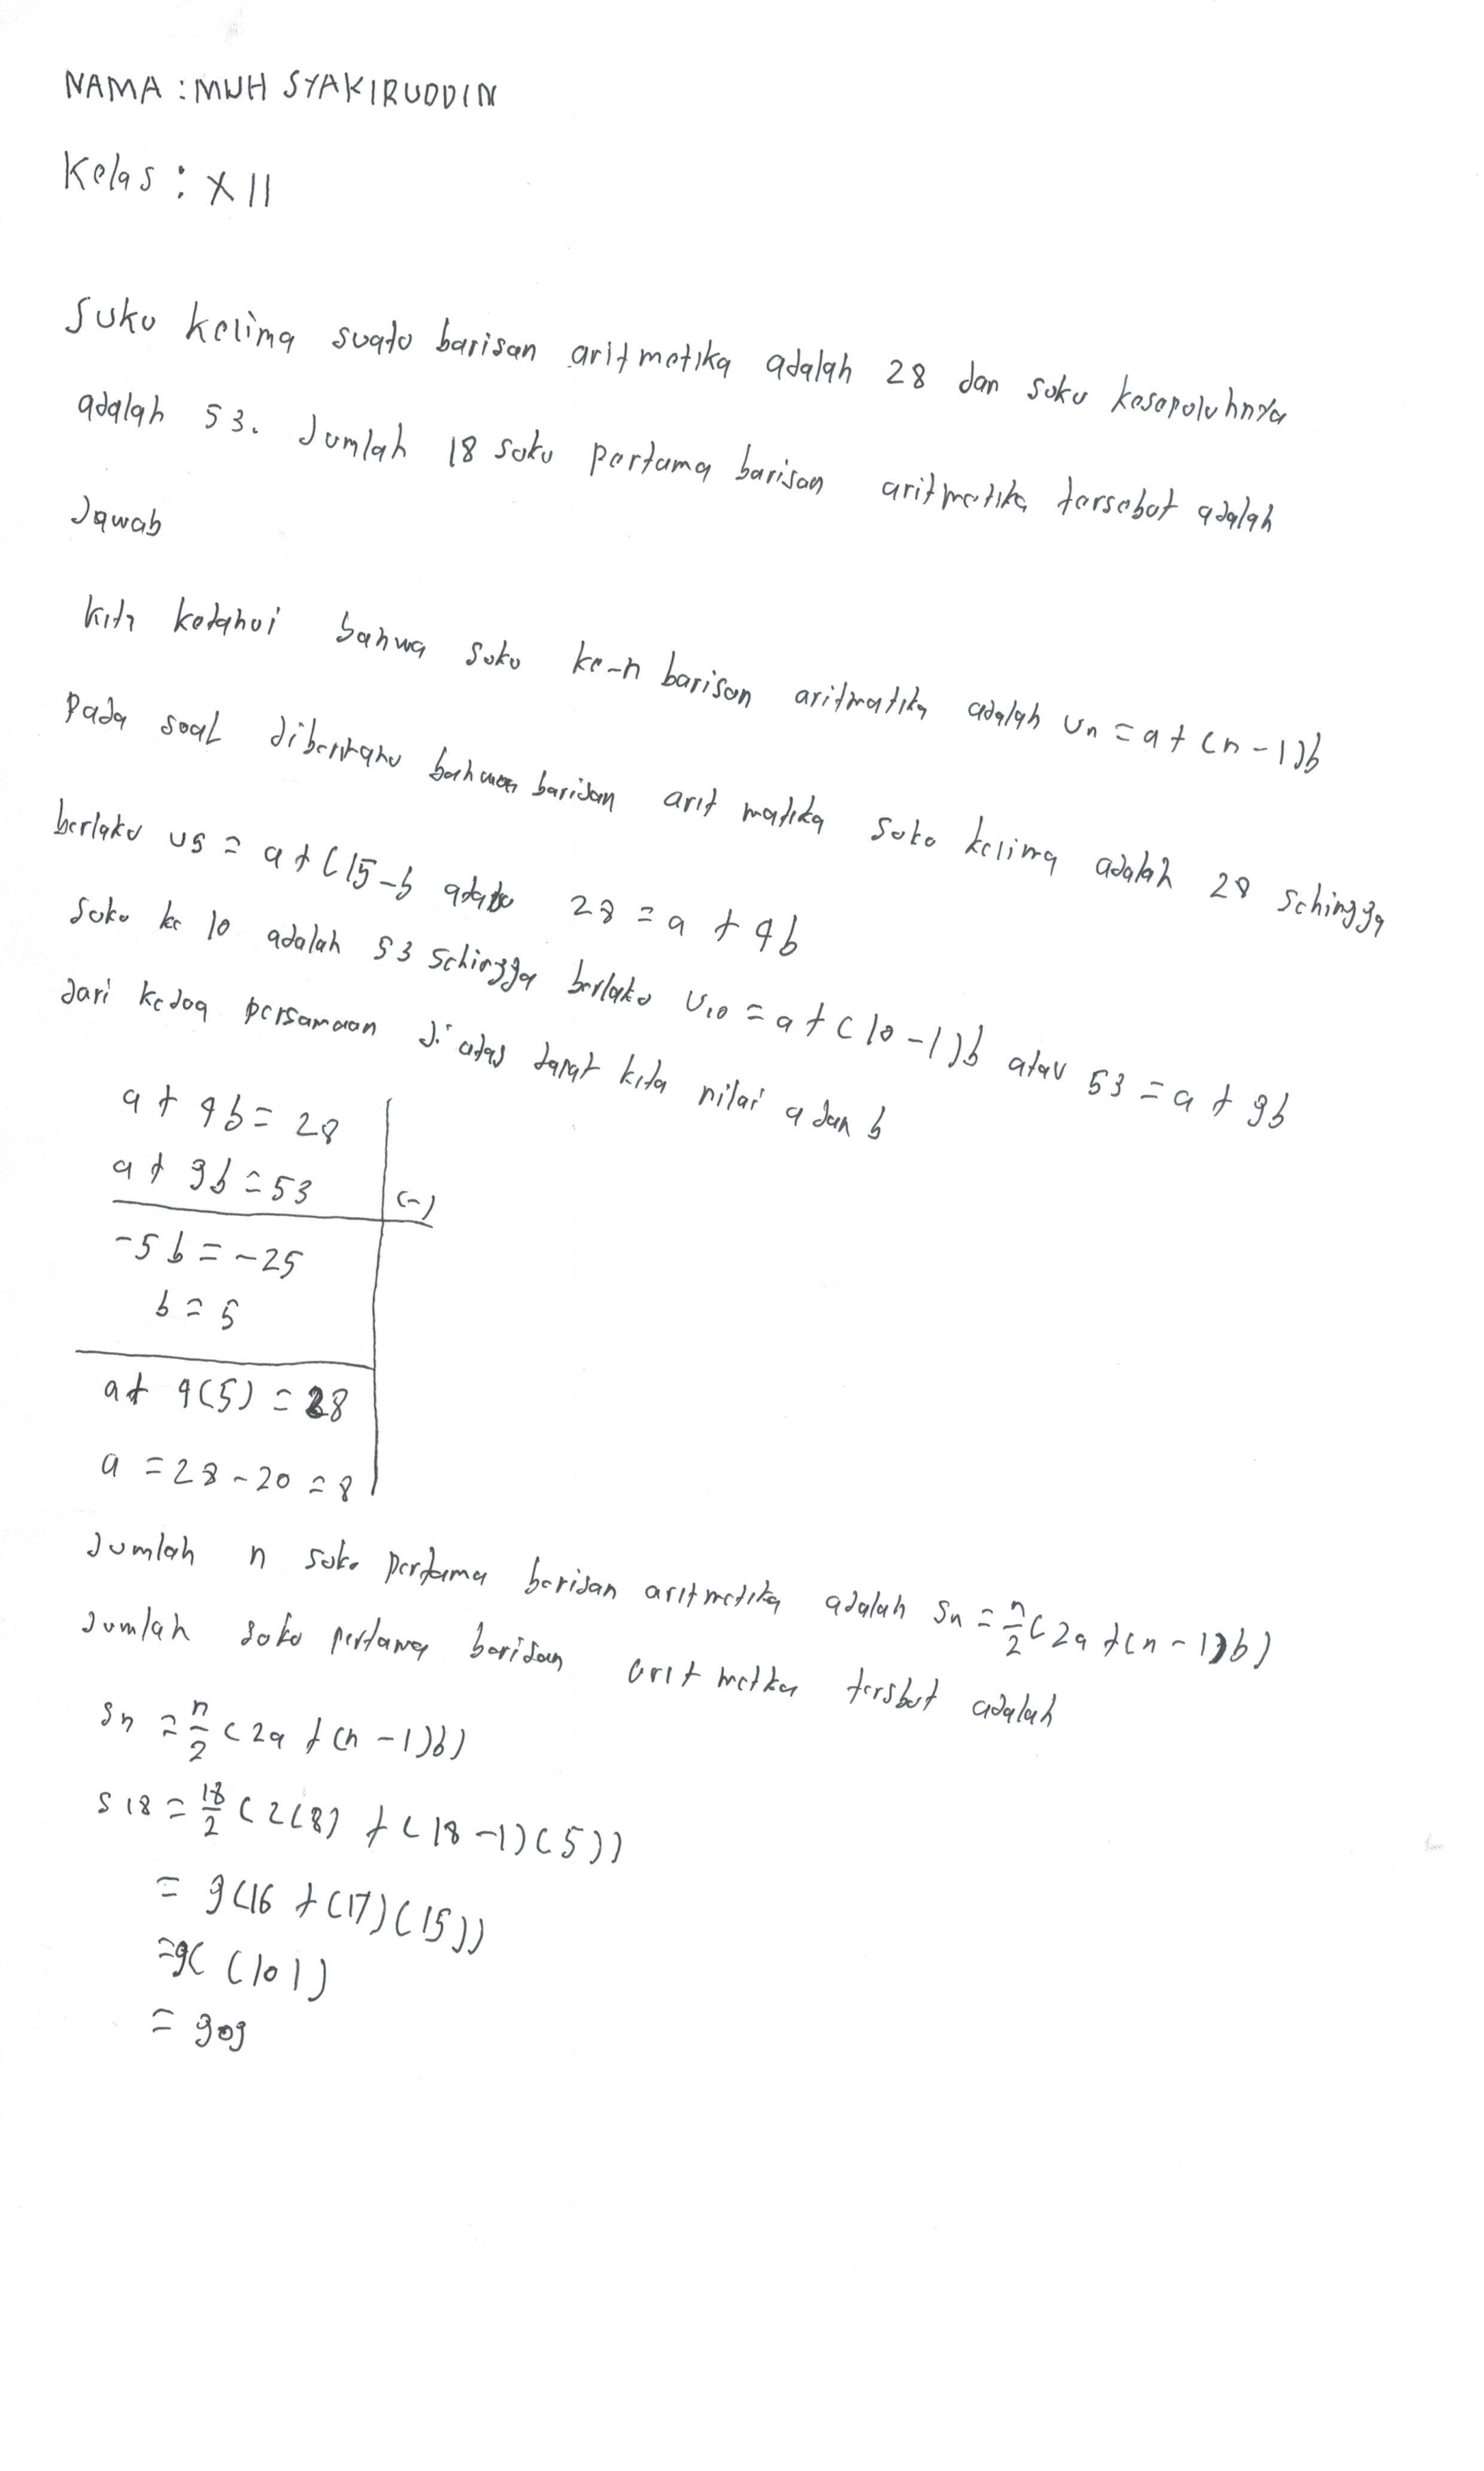 NAMA : MUH SYAKIRUDDIN
Kelas : XII
Suku kelima suatu barisan aritmetika adalah 28 dan suku kesepuluhnya
adalah 53. Jumlah 18 suku pertama barisan aritmetika tersebut adalah
Jawab
kita ketahui bahwa suku ke-n barisan aritmatika adalah Un = a + (n - 1)b
Pada soal barisan arit matika suku kelima adalah 28 sehingga
berlaku U5 = a + (15-b 28 = a + 4b
Suku ke 10 adalah 53 sehingga berlaku U10 = a + (10 - 1)b atau 53 = a + 9b
dari kedua persamaan di atas dapat kita nilai a dan b
a + 4b = 28
a + 9b = 53 (-)
-5b = -25
b = 5
a + 4(5) = 28
a = 28 - 20 = 8
Jumlah n suku pertama barisan aritmetika adalah Sn = n/2 (2a + (n - 1)b)
Jumlah suku pertama barisan arit metka tersbut adalah
Sn = n/2 (2a + (n - 1)b)
S18 = 18/2 (2(8) + (18 - 1)(5))
= 9(16 + (17)(15))
=9( (101)
= 909